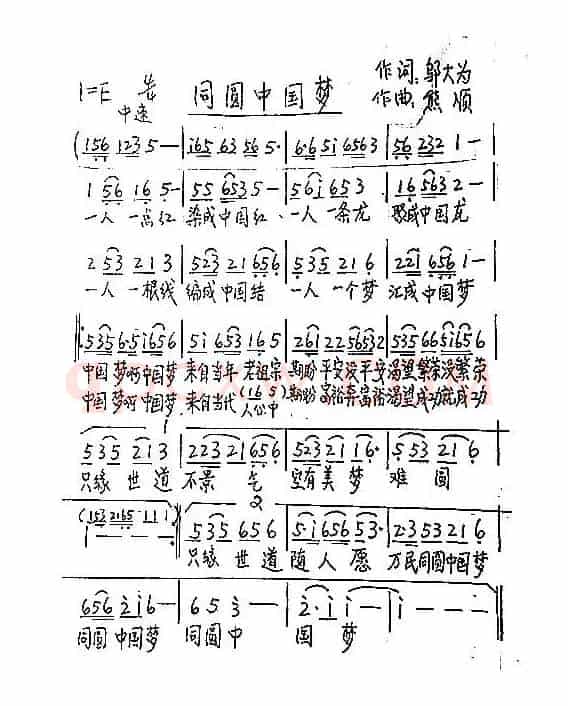 同圆中国梦
作词:邬大为
作曲:熊顺
1=E
中速
(156 123 5 — | i65 63 56 5· | 6·6 5i 6563 | 56 232 1 —
1 56 16 5 — | 55 653 5 — | 56i 653 | 16 563 2 —
一人 一点红 染成中国红、一人 一条龙 聚成中国龙
2 53 213 | 523 21 656 | 535 21 6 | 221 656 1 —
一人 一根线 编成中国结 一人 一个梦 汇成中国梦
535 6·5i656 | 5i 653 165 | 261 22 56532 | 535 66 5i656
中国 梦啊中国梦 来自当年 老祖宗 期盼平安没平安渴望繁荣没繁荣
中国 梦啊中国梦 来自当代 (165) 人心中 期盼富裕奔富裕渴望成功就成功
1
535 213 | 223 21 656 | 523 21 16· | 553 21 6
只缘 世道 不景 气 空有美梦 难 圆
2
(153 2165· 111)
1 — — — | 535 656 | 5·i 656 53· | 2·3 53 21 6
只缘 世道 随人愿 万民同圆中国梦
656 2i6 — | 65 3 — | 2·i i — | i — — —
同圆 中国梦 同圆中 国 梦